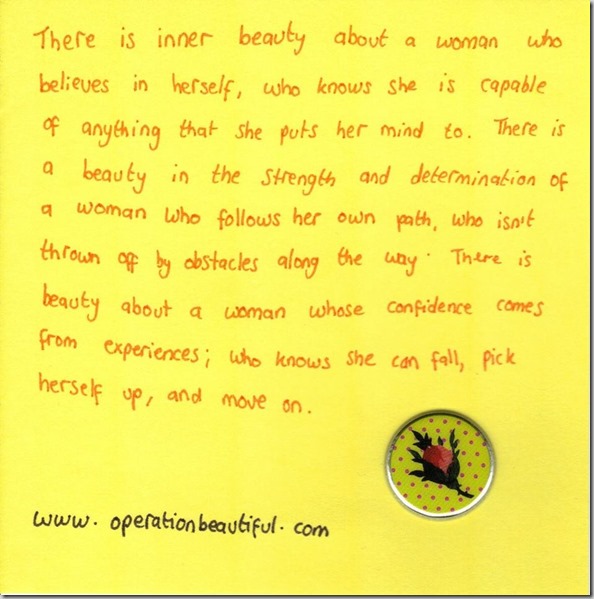 There is inner beauty about a woman who
believes in herself, who knows she is capable
of anything that she puts her mind to. There is
a beauty in the strength and determination of
a woman who follows her own path, who isn't
thrown off by obstacles along the way. There is
beauty about a woman whose confidence comes
from experiences; who knows she can fall, pick
herself up, and move on.
www.operationbeautiful.com